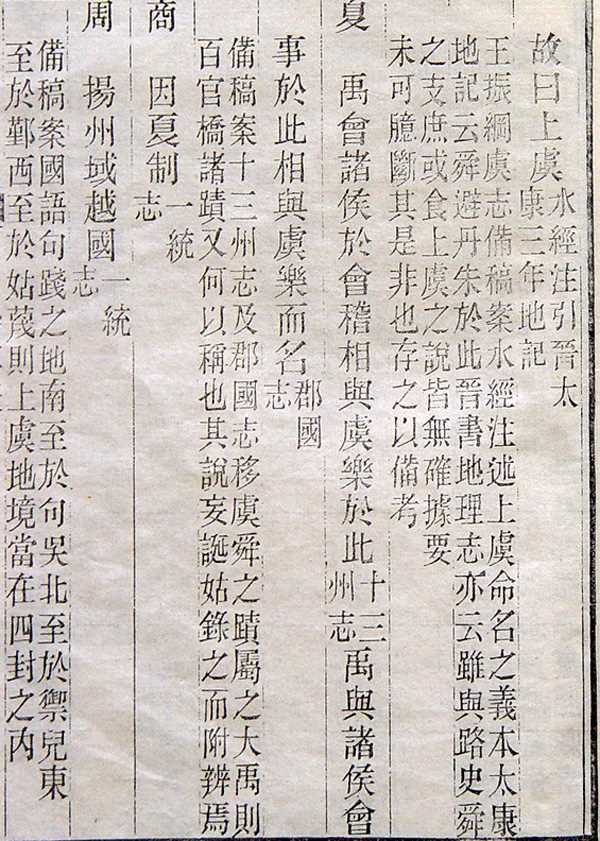 故曰上虞水經注引晉太
康三年地記
王振綱虞志備稿案水經注述上虞命名之義本太康
地記云舜避丹朱於此晉書地理志亦云雖與路史舜
之支庶或食上虞之說皆無確據要
未可臆斷其是非也存之以備考
夏
禹會諸侯於會稽相與虞樂於此十三
州志禹與諸侯會
事於此相與虞樂而名郡國
志
備稿案十三州志及郡國志移虞舜之蹟屬之大禹則
百官橋諸蹟又何以稱也其說妄誕姑錄之而附辨焉
商
因夏制一統
志
周
揚州域越國一統
志
備稿案國語句踐之地南至於句吳北至於禦兒東
至於鄞西至於姑蔑則上虞地境當在四封之內